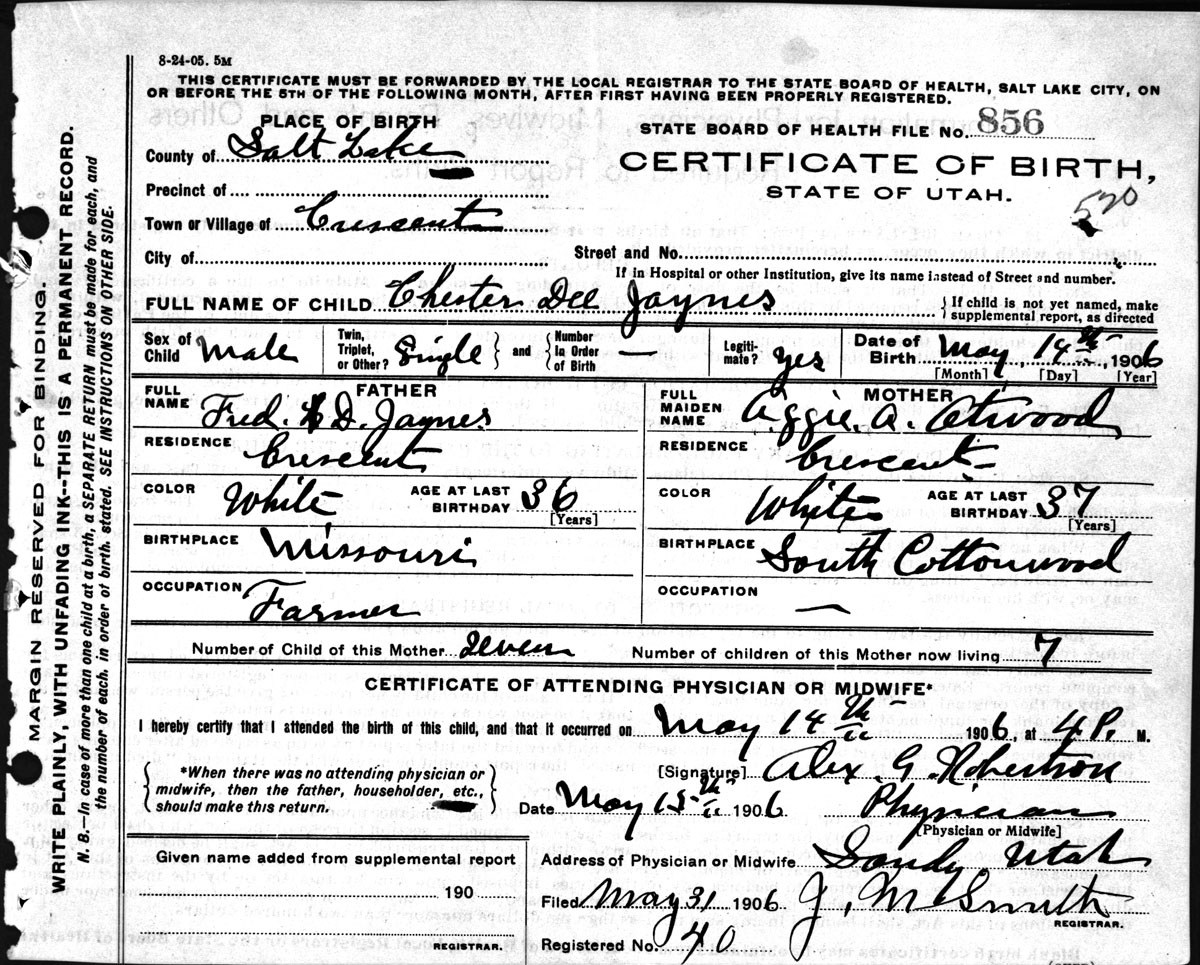 8-24-05. 5M
THIS CERTIFICATE MUST BE FORWARDED BY THE LOCAL REGISTRAR TO THE STATE BOARD OF HEALTH, SALT LAKE CITY, ON
OR BEFORE THE 5TH OF THE FOLLOWING MONTH, AFTER FIRST HAVING BEEN PROPERLY REGISTERED.
PLACE OF BIRTH
STATE BOARD OF HEALTH FILE No. 856
County of Salt Lake
CERTIFICATE OF BIRTH,
STATE OF UTAH.
Precinct of
Town or Village of Crescent
City of
Street and No.
If in Hospital or other Institution, give its name instead of Street and number.
FULL NAME OF CHILD Chester Dee Jaynes
If child is not yet named, make
supplemental report, as directed
Sex of Child Male
Twin, Triplet, or Other? Single
and Number In Order of Birth —
Legiti-mate? yes
Date of Birth May 14th, 1906
[Month] [Day] [Year]
FATHER
FULL NAME Fred. D. Jaynes
RESIDENCE Crescent
COLOR White
AGE AT LAST BIRTHDAY 36
[Years]
BIRTHPLACE Missouri
OCCUPATION Farmer
MOTHER
FULL MAIDEN NAME Aggie. A. Atwood
RESIDENCE Crescent
COLOR White
AGE AT LAST BIRTHDAY 37
[Years]
BIRTHPLACE South Cottonwood
OCCUPATION —
Number of Child of this Mother Seven
Number of children of this Mother now living 7
CERTIFICATE OF ATTENDING PHYSICIAN OR MIDWIFE*
I hereby certify that I attended the birth of this child, and that it occurred on May 14th 1906, at 4 P. M.
*When there was no attending physician or
midwife, then the father, householder, etc.,
should make this return.
[Signature] Alex. G. Robertson
Date May 15th 1906 Physician
[Physician or Midwife]
Given name added from supplemental report
190
REGISTRAR.
Address of Physician or Midwife Sandy Utah
Filed May 31 1906 J. M Smith
REGISTRAR.
Registered No. 40
MARGIN RESERVED FOR BINDING
WRITE PLAINLY, WITH UNFADING INK--THIS IS A PERMANENT RECORD.
N. B.—In case of more than one child at a birth, a SEPARATE RETURN must be made for each, and
the number of each, in order of birth, stated. SEE INSTRUCTIONS ON OTHER SIDE.